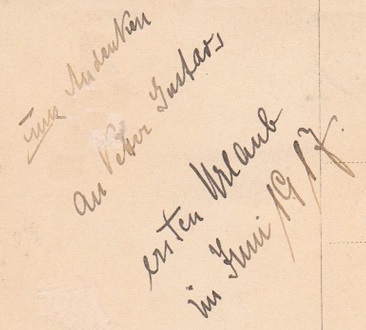 Zum Andenken
an Peter Gustavs
ersten Urlaub
im Juni 1917.